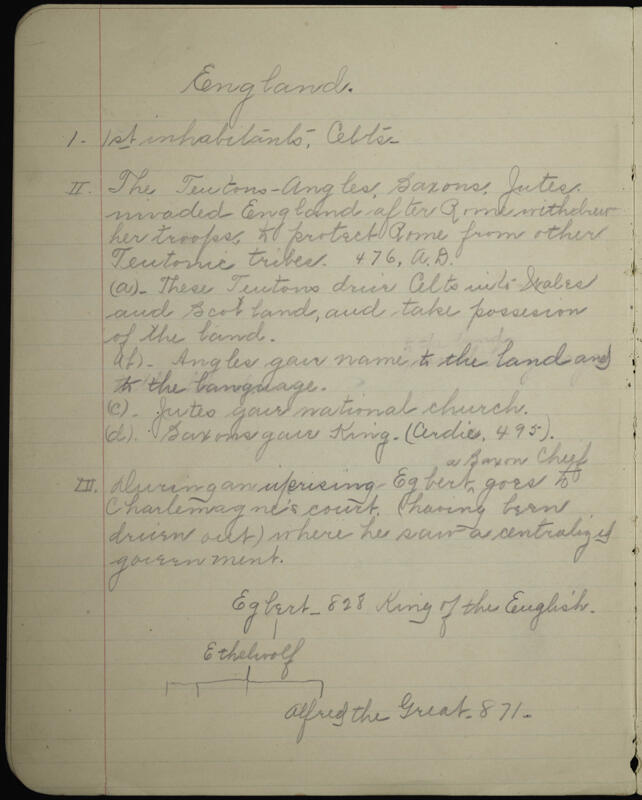 England.
I. 1st inhabitants, Celts-
II. The Teutons-Angles, Saxons, Jutes,
invaded England after Rome withdrew
her troops, to protect Rome from other
Teutonic tribes. 476, A.D.
(a)- These Teutons drive Celts into Wales
and Scotland, and take possesion
of the land.
(b)- Angles gave name to the land and
to the language.
(c)- Jutes gave national church.
(d). Saxons gave King. (Cerdic, 495).
a Saxon Chief
III. During an uprising Egbert, goes to
Charlemagne's court. (having been
driven out) where he saw a centralized
government.
Egbert- 828 King of the English.
Ethelwolf
Alfred the Great- 871-